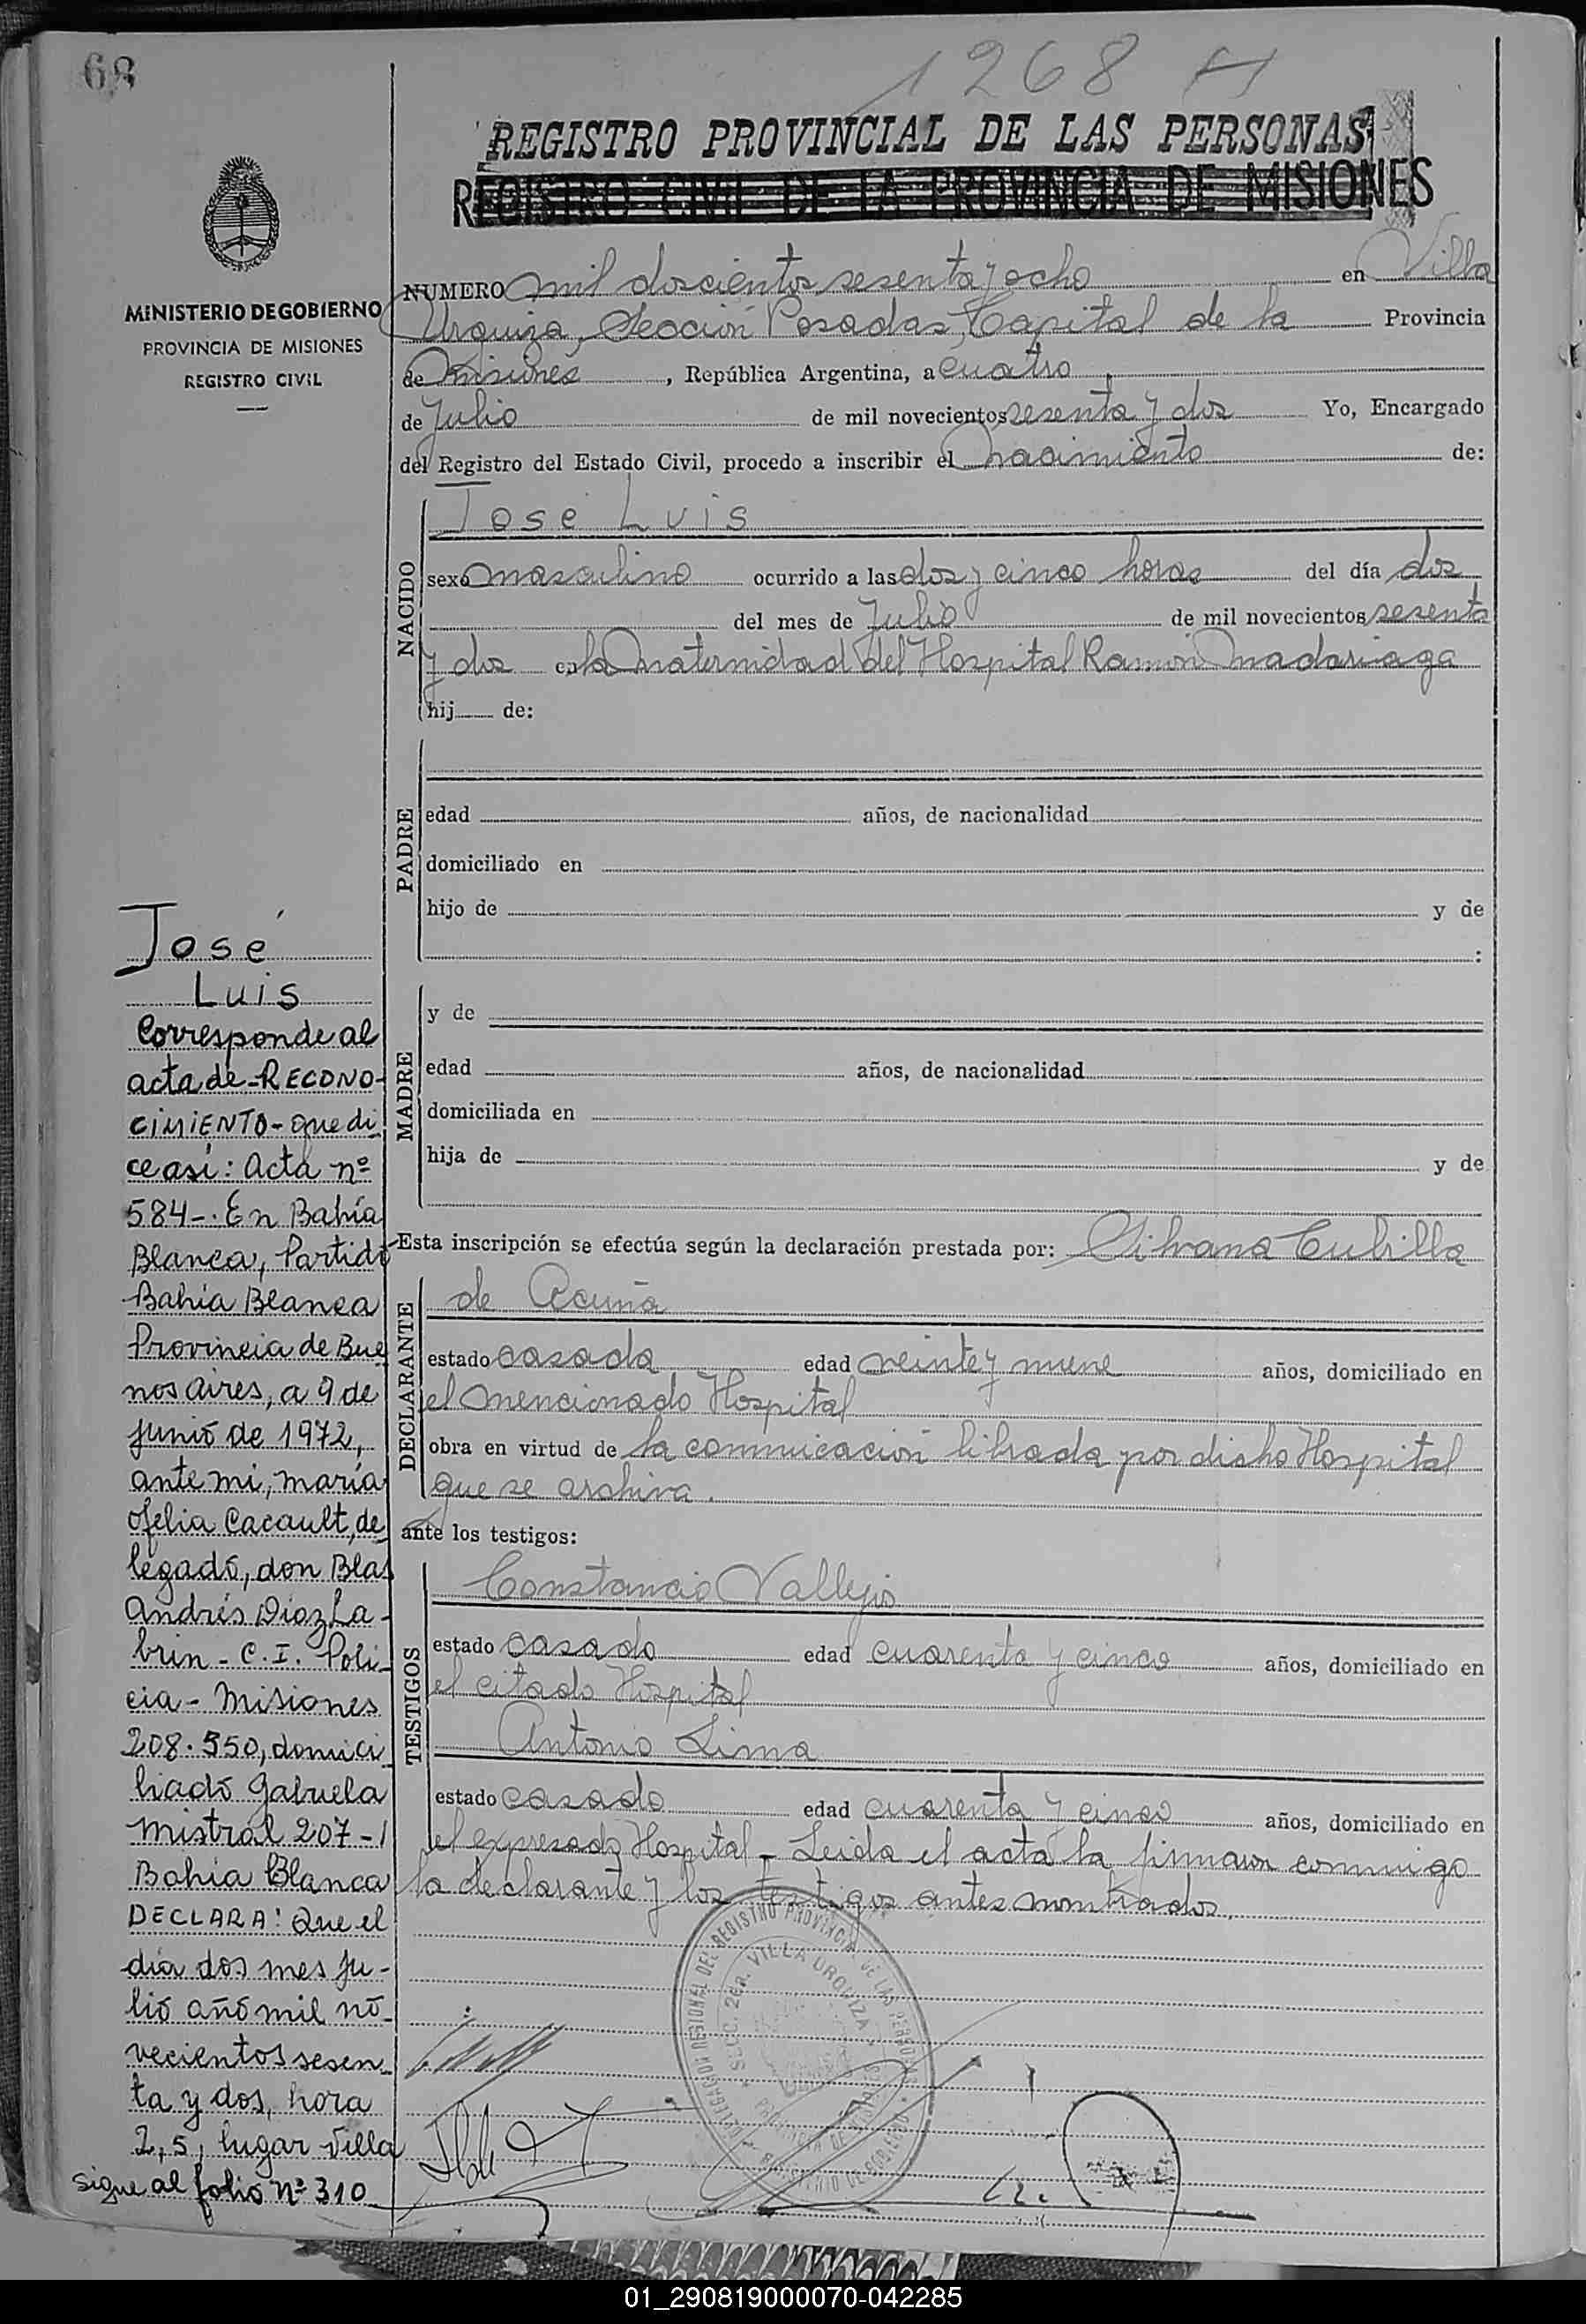 68
1268 H
REGISTRO PROVINCIAL DE LAS PERSONAS
REGISTRO CIVIL DE LA PROVINCIA DE MISIONES
MINISTERIO DE GOBIERNO
PROVINCIA DE MISIONES
REGISTRO CIVIL
NUMERO mil doscientos sesenta y ocho en Villa
Urquiza, Sección Posadas, Capital de la Provincia
de Misiones, República Argentina, a cuatro
de Julio de mil novecientos sesenta y dos Yo, Encargado
del Registro del Estado Civil, procedo a inscribir el nacimiento de:
NACIDO
José Luis
sexo masculino ocurrido a las dos y cinco horas del día dos
del mes de Julio de mil novecientos sesenta
y dos en la Maternidad del Hospital Ramón Madariaga
hij de:
PADRE
edad años, de nacionalidad
domiciliado en
hijo de y de
:
MADRE
y de
edad años, de nacionalidad
domiciliada en
hija de y de
Esta inscripción se efectúa según la declaración prestada por: Silvana Cubilla
DECLARANTE
de Acuña
estado casada edad veinte y nueve años, domiciliado en
el mencionado Hospital
obra en virtud de la comunicación librada por dicho Hospital
que se archiva.
ante los testigos:
TESTIGOS
Constancio Vallejo
estado casado edad cuarenta y cinco años, domiciliado en
el citado Hospital
Antonio Lima
estado casado edad cuarenta y cinco años, domiciliado en
el expresado Hospital - Leida el acta la firmaron conmigo
la declarante y los testigos antes nombrados.
DELEGACION REGIONAL DEL REGISTRO PROVINCIAL DE LAS PERSONAS
SECC. 2da. VILLA URQUIZA
MINISTERIO DE GOBIERNO
José
Luis
Corresponde al
acta de - RECONO-
CIMIENTO - que di
ce así: Acta nº
584-. En Bahía
Blanca, Partido
Bahía Blanca
Provincia de Bue
nos Aires, a 9 de
junio de 1972,
ante mi, maría
Ofelia Cacault, de
legado, don Blas
Andrés Diaz La-
brin - C.I. Poli-
cia - Misiones
208.550, domici
liado Gabriela
Mistral 207-1
Bahia Blanca
DECLARA: Que el
día dos mes ju-
lio año mil no-
vecientos sesen-
ta y dos, hora
2,5, lugar Villa
sigue al folio nº 310
01_290819000070-042285